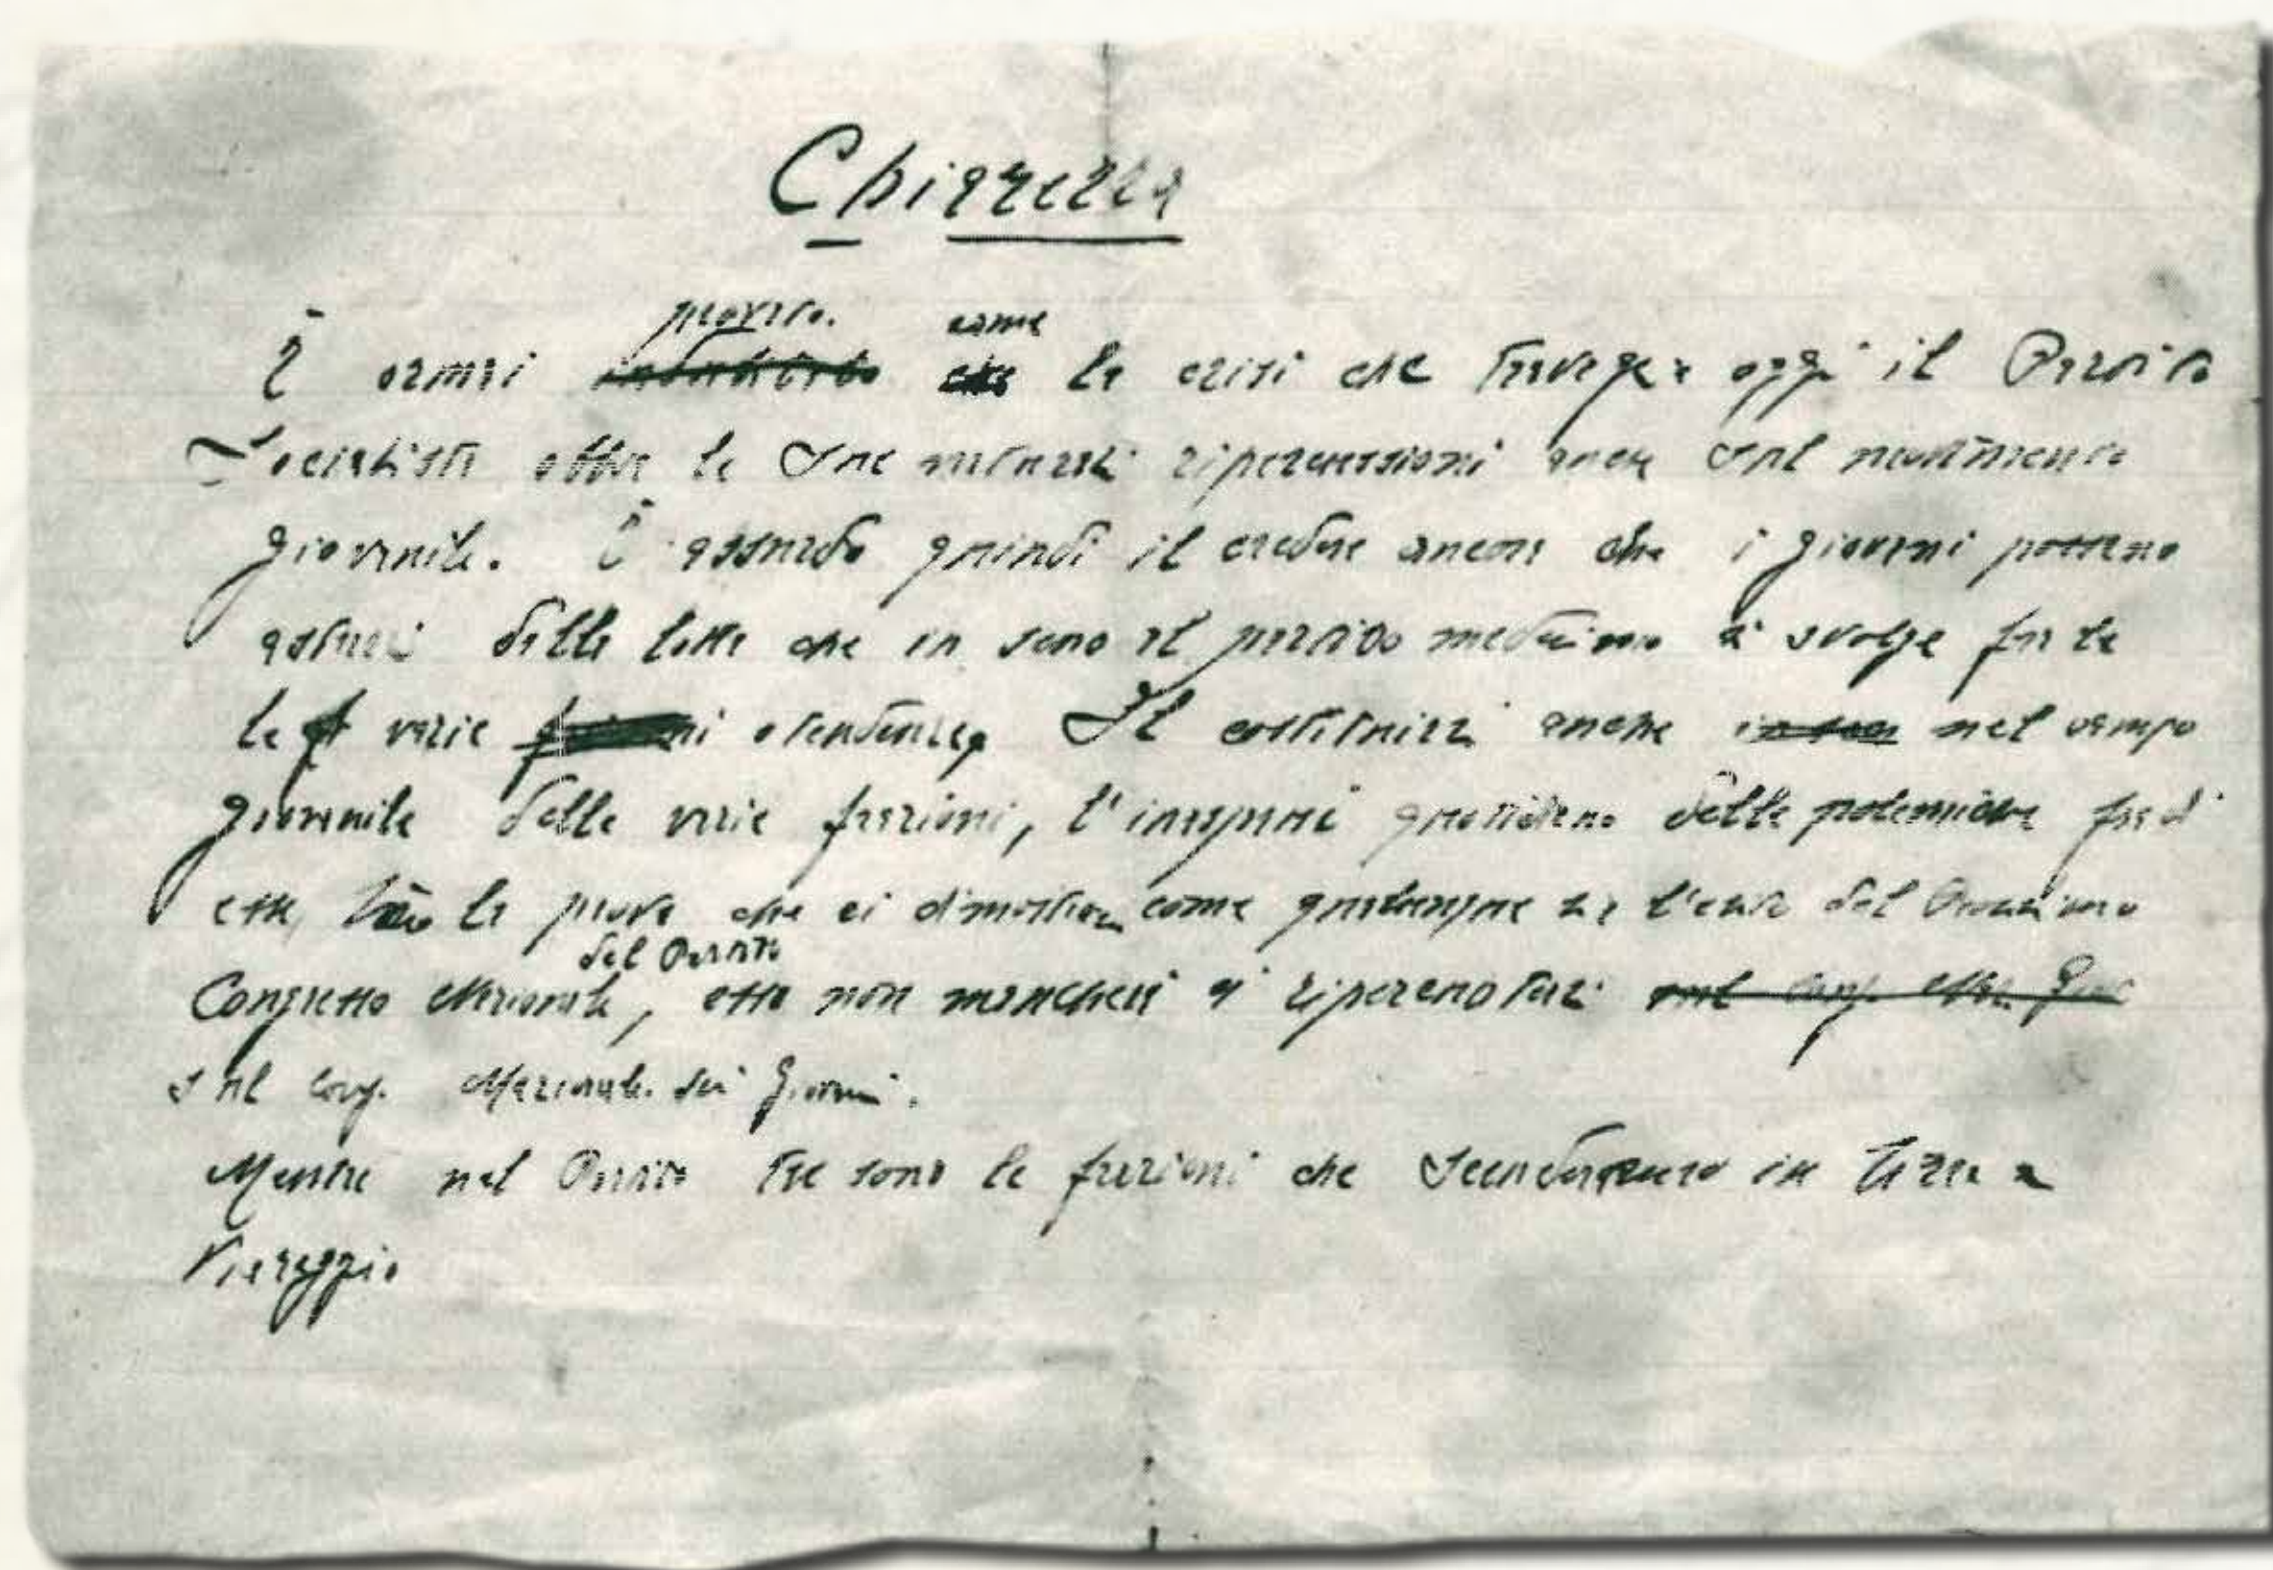 Chiarezza
provato. come
È ormai indubitato che la crisi che travaglia oggi il Partito
Socialista abbia le sue naturali ripercussioni anche sul movimento
giovanile. È assurdo quindi il credere ancora che i giovani possano
delle lotte che in seno al partito medesimo si svolge fra le
le varie o tendenze. Il costituirsi anche nel campo
giovanile delle varie frazioni, quotidiano delle polemiche fra di
esse, la prova che ci dimostra come qualunque sia l'esito del Prossimo
del Partito
Congresso Nazionale, esso non mancherà di ripercuotersi sul Cong. Naz. Giov
sul Cong. Nazionale dei Giovani.
Mentre nel Partito tre sono le frazioni che scenderanno in lizza a
Viareggio